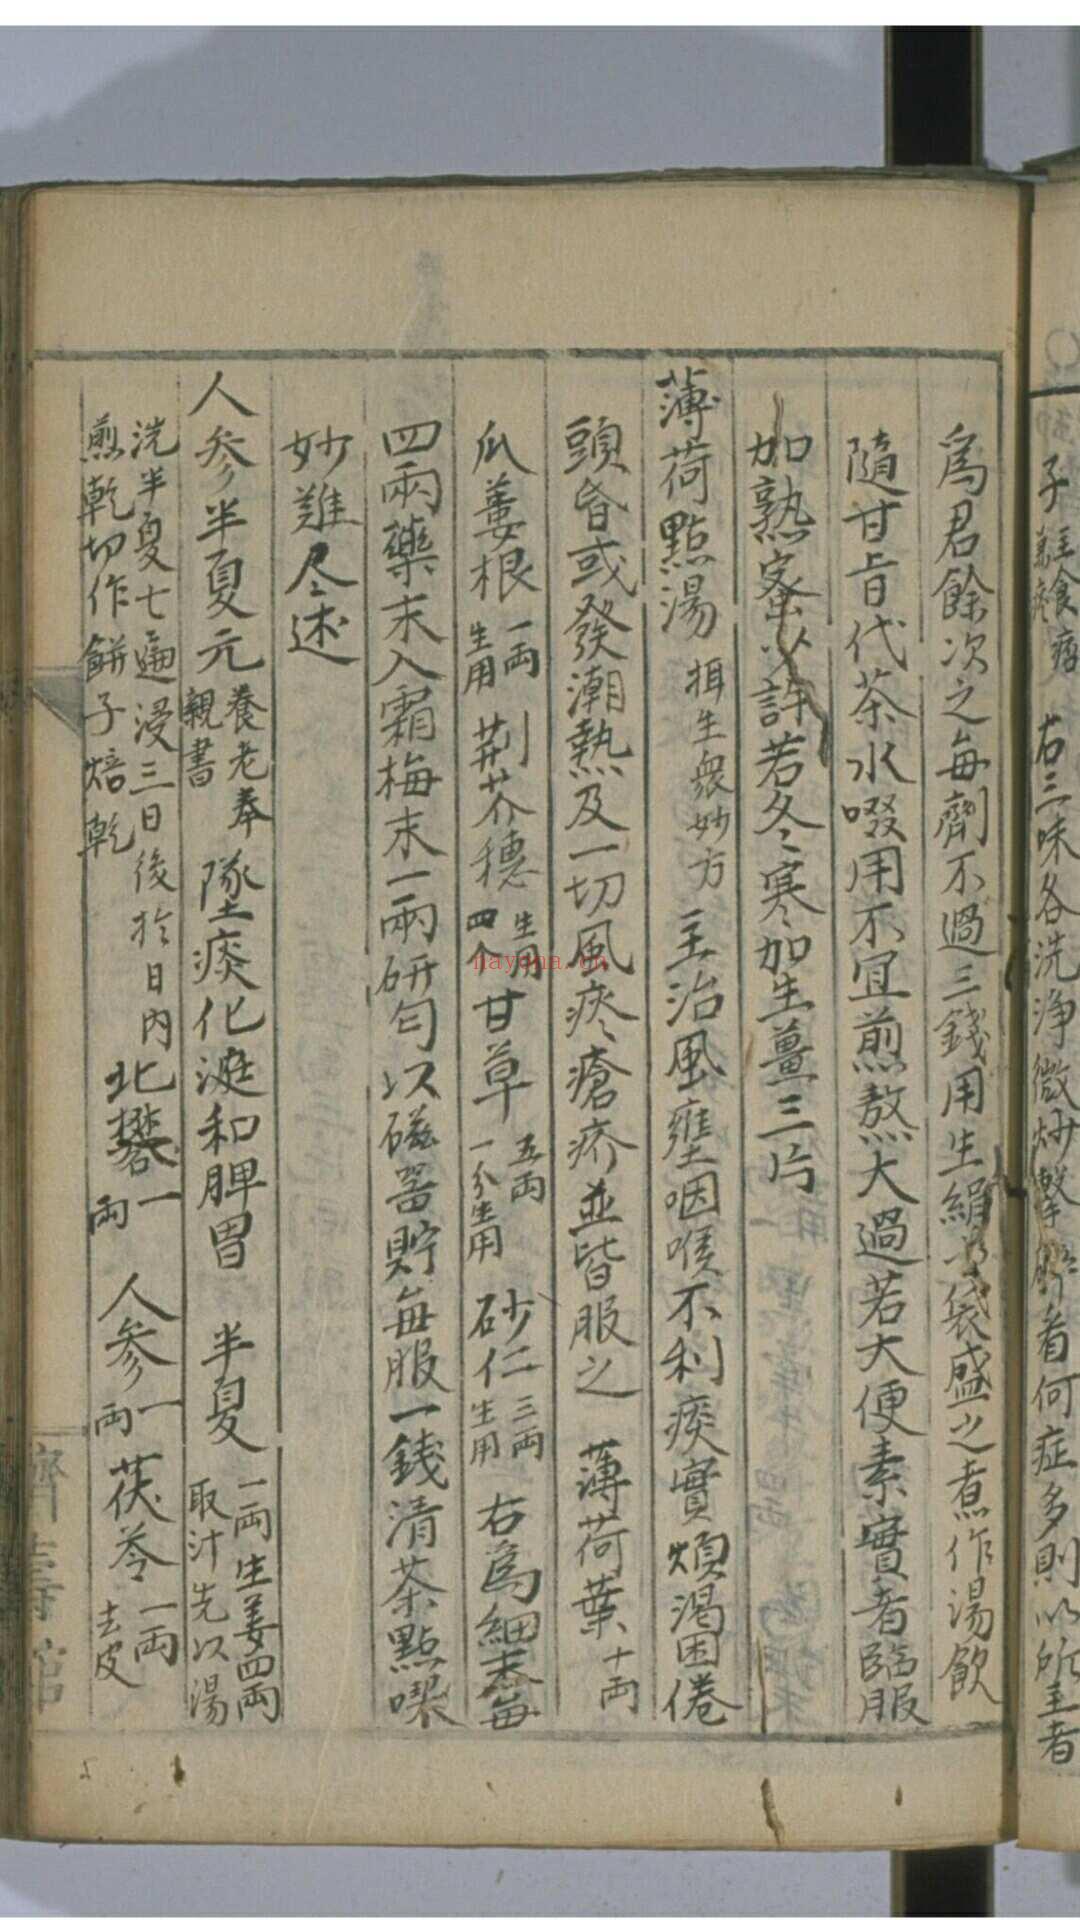 子
主食痞
右三味各洗淨微炒擊碎看何症多則以所主者
爲君餘次之每劑不過三錢用生絹袋盛之煮作湯飲
隨甘旨代茶水啜用不宜煎熬大過若大便素實者臨服
加熟蜜少許若冬寒加生薑三片
薄荷點湯 攝生衆妙方 主治風壅咽喉不利痰實煩渴困倦
頭昏或發潮熱及一切風痰瘡疥並皆服之 薄荷葉十両
瓜蔞根一両生用 荆芥穗生用四个 甘草五両一分生用 砂仁三両生用 右爲細末每
四兩藥末入霜梅末一兩研匀以磁器貯每服一錢清茶點喫
妙難尽述
人參半夏元 養老奉親書 墜痰化涎和脾胃 半夏一両生姜四両取汁先以湯
洗半夏七遍浸三日後於日內煎乾切作餅子焙乾 北礬一両 人参一両 茯苓一両去皮
躋壽館
nayona.cn